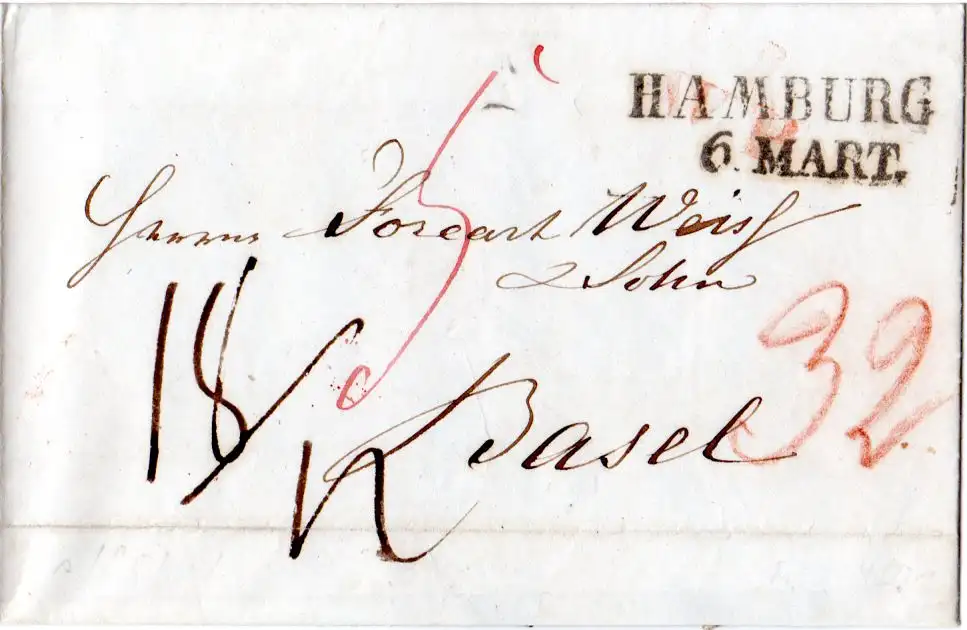 HAMBURG
6. MART.
Herrn Forcart Weis
& Sohn
Basel
32
18
5